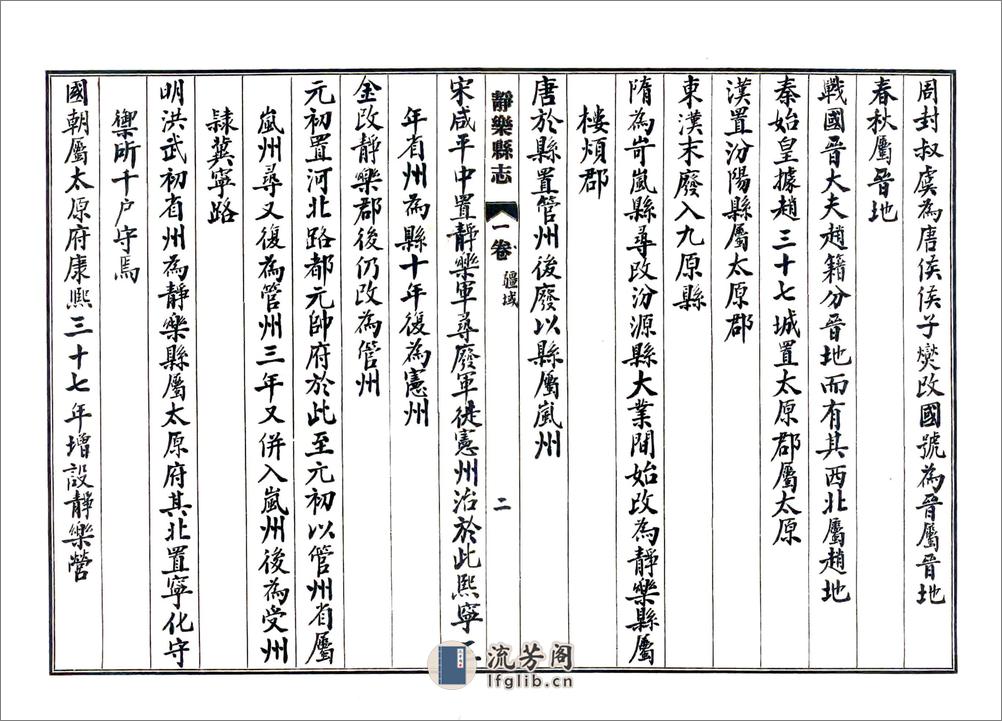 周封叔虞為唐侯侯子燮改國號為晉屬晉地
春秋屬晉地
戰國晉大夫趙籍分晉地而有其西北屬趙地
秦始皇據趙三十七城置太原郡屬太原
漢置汾陽縣屬太原郡
東漢末廢入九原縣
隋為岢嵐縣尋改汾源縣大業間始改為靜樂縣屬
樓煩郡
唐於縣置管州後廢以縣屬嵐州
靜樂縣志 一卷 疆域 二
宋咸平中置靜樂軍尋廢軍徙憲州治於此熙寧
年省州為縣十年復為憲州
金改靜樂郡後仍改為管州
元初置河北路都元帥府於此至元初以管州省屬
嵐州尋又復為管州三年又併入嵐州後為受州
隸冀寧路
明洪武初省州為靜樂縣屬太原府其北置寧化守
禦所千户守焉
國朝屬太原府康熙三十七年增設靜樂營
流芳阁
lfglib.cn